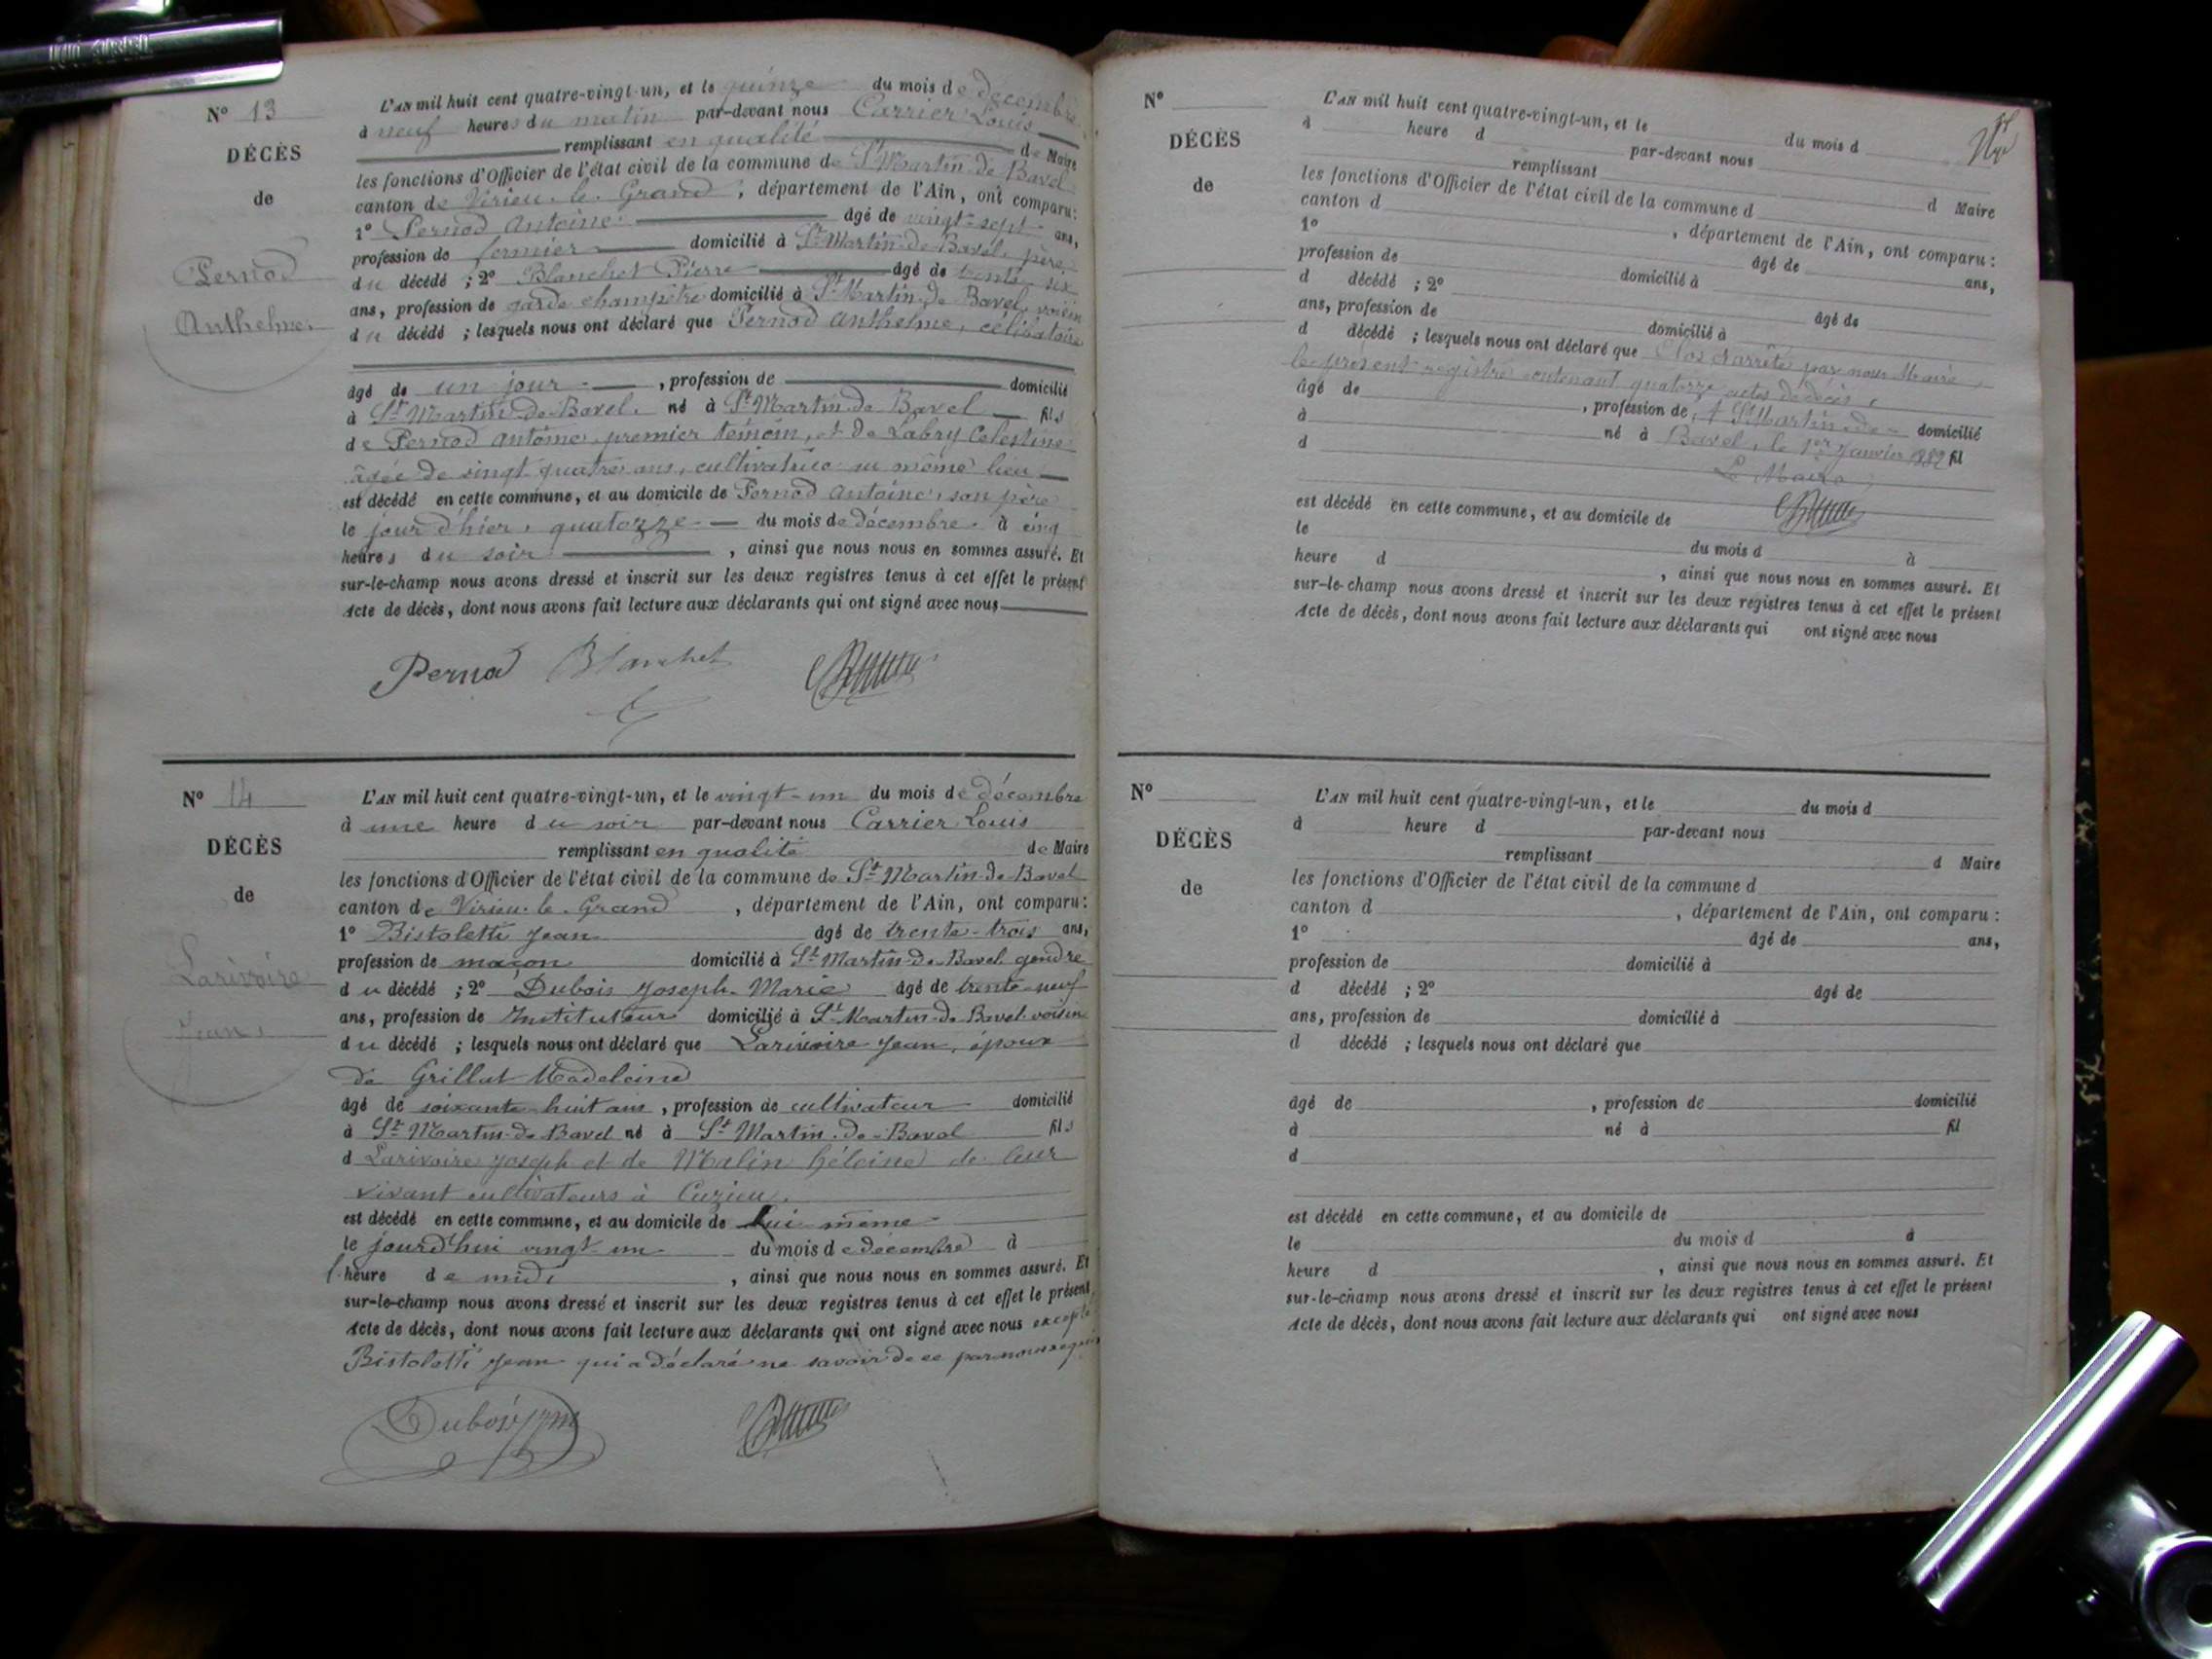 N° 13
DÉCÈS
de
Pernod
Anthelme
L'AN mil huit cent quatre-vingt-un, et le quinze du mois de décembre
à neuf heures du matin par-devant nous Carrier Louis
remplissant en qualité de Maire
les fonctions d'Officier de l'état civil de la commune de St Martin-de-Bavel
canton de Virieu-le-Grand, département de l'Ain, ont comparu :
1° Pernod Antoine âgé de vingt-sept ans,
profession de fermier domicilié à St Martin-de-Bavel, père
du décédé ; 2° Blanchet Pierre âgé de trente-six
ans, profession de garde champêtre domicilié à St Martin-de-Bavel, voisin
du décédé ; lesquels nous ont déclaré que Pernod Anthelme, célibataire
âgé de un jour, profession de domicilié
à St Martin-de-Bavel. né à St Martin-de-Bavel fils
de Pernod Antoine, premier témoin, et de Labry Celestine
âgée de vingt quatre ans, cultivatrice au même lieu
est décédé en cette commune, et au domicile de Pernod Antoine, son père
le jour d'hier, quatorze du mois de décembre à cinq
heures du soir, ainsi que nous nous en sommes assuré. Et
sur-le-champ nous avons dressé et inscrit sur les deux registres tenus à cet effet le présent
Acte de décès, dont nous avons fait lecture aux déclarants qui ont signé avec nous
Pernod Blanchet
N° 14
DÉCÈS
de
Larivoire
Jean
L'AN mil huit cent quatre-vingt-un, et le vingt-un du mois de décembre
à une heure du soir par-devant nous Carrier Louis
remplissant en qualité de Maire
les fonctions d'Officier de l'état civil de la commune de St Martin-de-Bavel
canton de Virieu-le-Grand, département de l'Ain, ont comparu :
1° Bistoletti Jean âgé de trente-trois ans,
profession de maçon domicilié à St Martin-de-Bavel gendre
du décédé ; 2° Dubois Joseph-Marie âgé de trente-neuf
ans, profession de Instituteur domicilié à St Martin-de-Bavel voisin
du décédé ; lesquels nous ont déclaré que Larivoire Jean, époux
de Grillat Madeleine
âgé de soixante-huit ans, profession de cultivateur domicilié
à St Martin-de-Bavel né à St Martin-de-Bavel fils
d Larivoire Joseph et de Malin hélène de leur
vivant cultivateurs à Cuzieu.
est décédé en cette commune, et au domicile de lui-même
le jourd'hui vingt-un du mois de décembre à
l'heure de midi, ainsi que nous nous en sommes assuré. Et
sur-le-champ nous avons dressé et inscrit sur les deux registres tenus à cet effet le présent
Acte de décès, dont nous avons fait lecture aux déclarants qui ont signé avec nous excepté
Bistoletti Jean qui a déclaré ne savoir de ce par nous requis
Dubois jph
N°
DÉCÈS
de
L'AN mil huit cent quatre-vingt-un, et le du mois d
à heure d par-devant nous
remplissant d Maire
les fonctions d'Officier de l'état civil de la commune d
canton d, département de l'Ain, ont comparu :
1° âgé de ans,
profession de domicilié à
d décédé ; 2° âgé de
ans, profession de domicilié à
d décédé ; lesquels nous ont déclaré que Clos et arrêté par nous Maire,
le présent registre contenant quatorze actes de décès,
âgé de, profession de, A St Martin-de- domicilié
à né à Bavel, le 1er Janvier 1882 fil
d Le Maire
est décédé en cette commune, et au domicile de
le du mois d à
heure d, ainsi que nous nous en sommes assuré. Et
sur-le-champ nous avons dressé et inscrit sur les deux registres tenus à cet effet le présent
Acte de décès, dont nous avons fait lecture aux déclarants qui ont signé avec nous
N°
DÉCÈS
de
L'AN mil huit cent quatre-vingt-un, et le du mois d
à heure d par-devant nous
remplissant d Maire
les fonctions d'Officier de l'état civil de la commune d
canton d, département de l'Ain, ont comparu :
1° âgé de ans,
profession de domicilié à
d décédé ; 2° âgé de
ans, profession de domicilié à
d décédé ; lesquels nous ont déclaré que
âgé de, profession de domicilié
à né à fil
d
est décédé en cette commune, et au domicile de
le du mois d à
heure d, ainsi que nous nous en sommes assuré. Et
sur-le-champ nous avons dressé et inscrit sur les deux registres tenus à cet effet le présent
Acte de décès, dont nous avons fait lecture aux déclarants qui ont signé avec nous